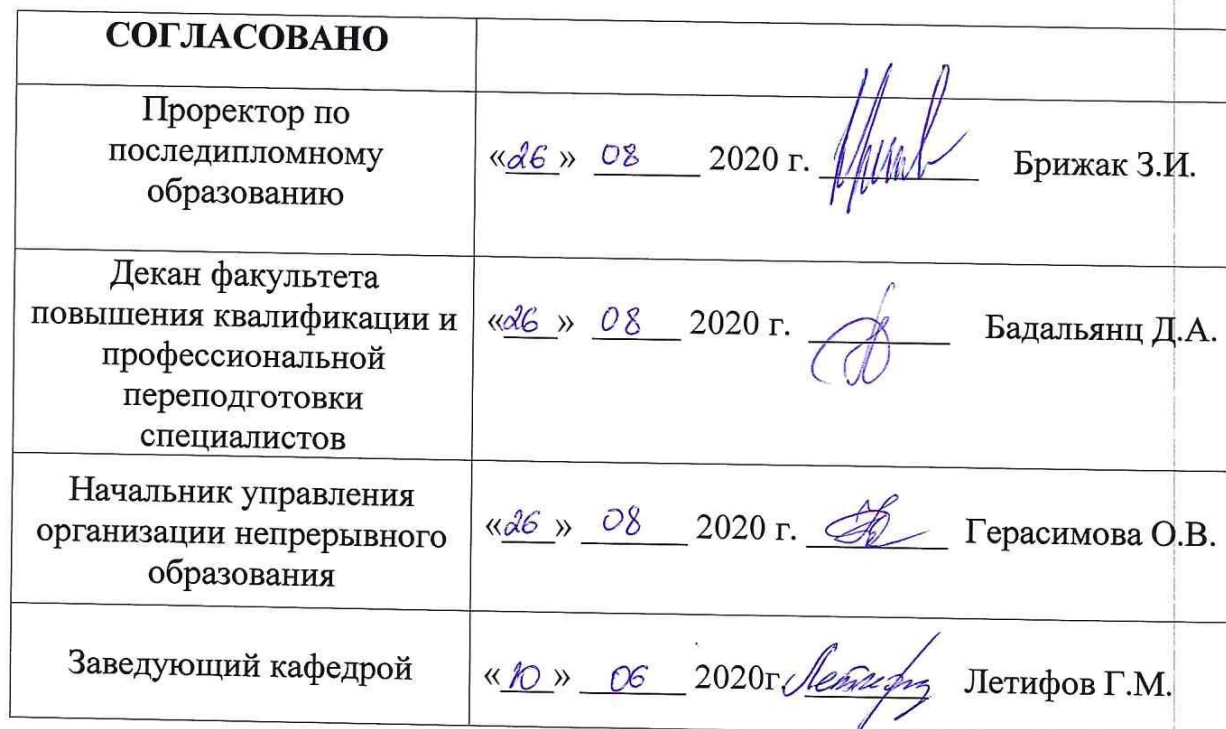 СОГЛАСОВАНО
Проректор по
последипломному
образованию
«26» 08 2020 г. Брижак З.И.
Декан факультета
повышения квалификации и
профессиональной
переподготовки
специалистов
«26» 08 2020 г. Бадальянц Д.А.
Начальник управления
организации непрерывного
образования
«26» 08 2020 г. Герасимова О.В.
Заведующий кафедрой
«10» 06 2020г. Летифов Г.М.